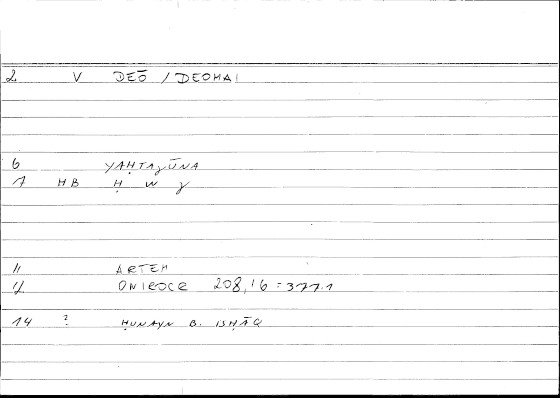 2 V DEŌ / DEOMAI
6 YAḤTAǧŪNA
7 HB Ḥ W ǧ
11 ARTEM
12 ONIROCR 208,16 = 377.1
14 ? ḤUNAYN B. ISḤĀQ